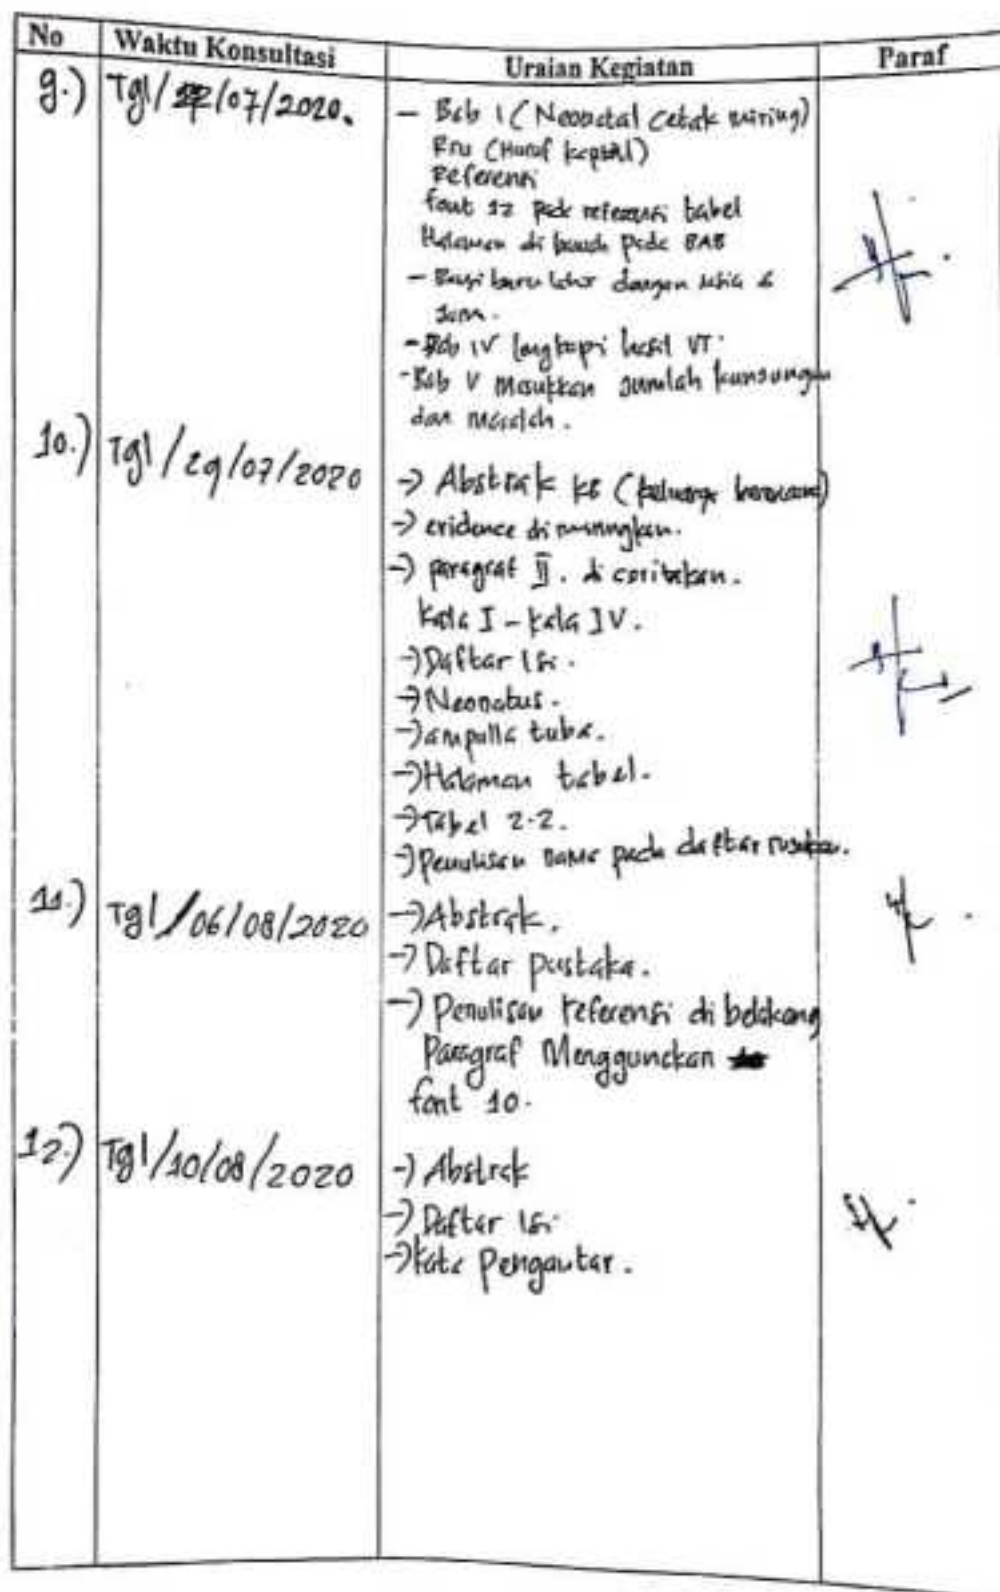 No Waktu Konsultasi Uraian Kegiatan Paraf
9.) Tgl/ /07/2020.
- Bab I (Neonatal cetak miring)
(Huruf kapital)
Referensi
font 12 pada referensi tabel
Halaman di bawah pada BAB
- Bayi baru lahir dengan usia 6
Jam.
- Bab IV lengkapi hasil VT.
- Bab V Masukkan Jumlah kunjungan
dan masalah.
10.) Tgl/29/07/2020
-> Abstrak KB (keluarga berencana)
-> evidence di miringkan.
-> paragraf II. di ceritakan.
Kala I - kala IV.
-> Daftar Isi.
-> Neonatus.
-> ampulla tuba.
-> Halaman tabel.
-> Tabel 2.2.
-> Penulisan nama pada daftar pustaka.
11.) Tgl/06/08/2020
-> Abstrak.
-> Daftar pustaka.
-> Penulisan referensi di belakang
Paragraf Menggunakan
font 10.
12.) Tgl/10/08/2020
-> Abstrak
-> Daftar Isi
-> Kata Pengantar.